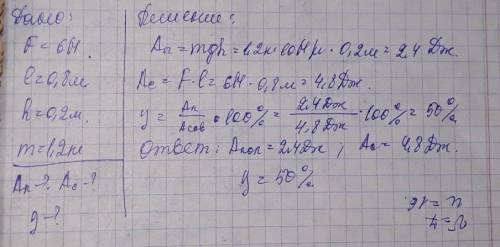 Дано:
F = 6Н
l = 0,8м
h = 0,2м.
m = 1,2кг
Aп-? Aс-?
у-?
Решение:
Aп = mgh = 1,2кг · 10Н/кг · 0,2м = 2,4 Дж
Aс = F · l = 6Н · 0,8м = 4,8Дж.
у = Aп/Aсов · 100% = 2,4Дж/4,8Дж · 100% = 50%
Ответ: Aпол = 2,4Дж ; Aс = 4,8Дж.
у = 50%